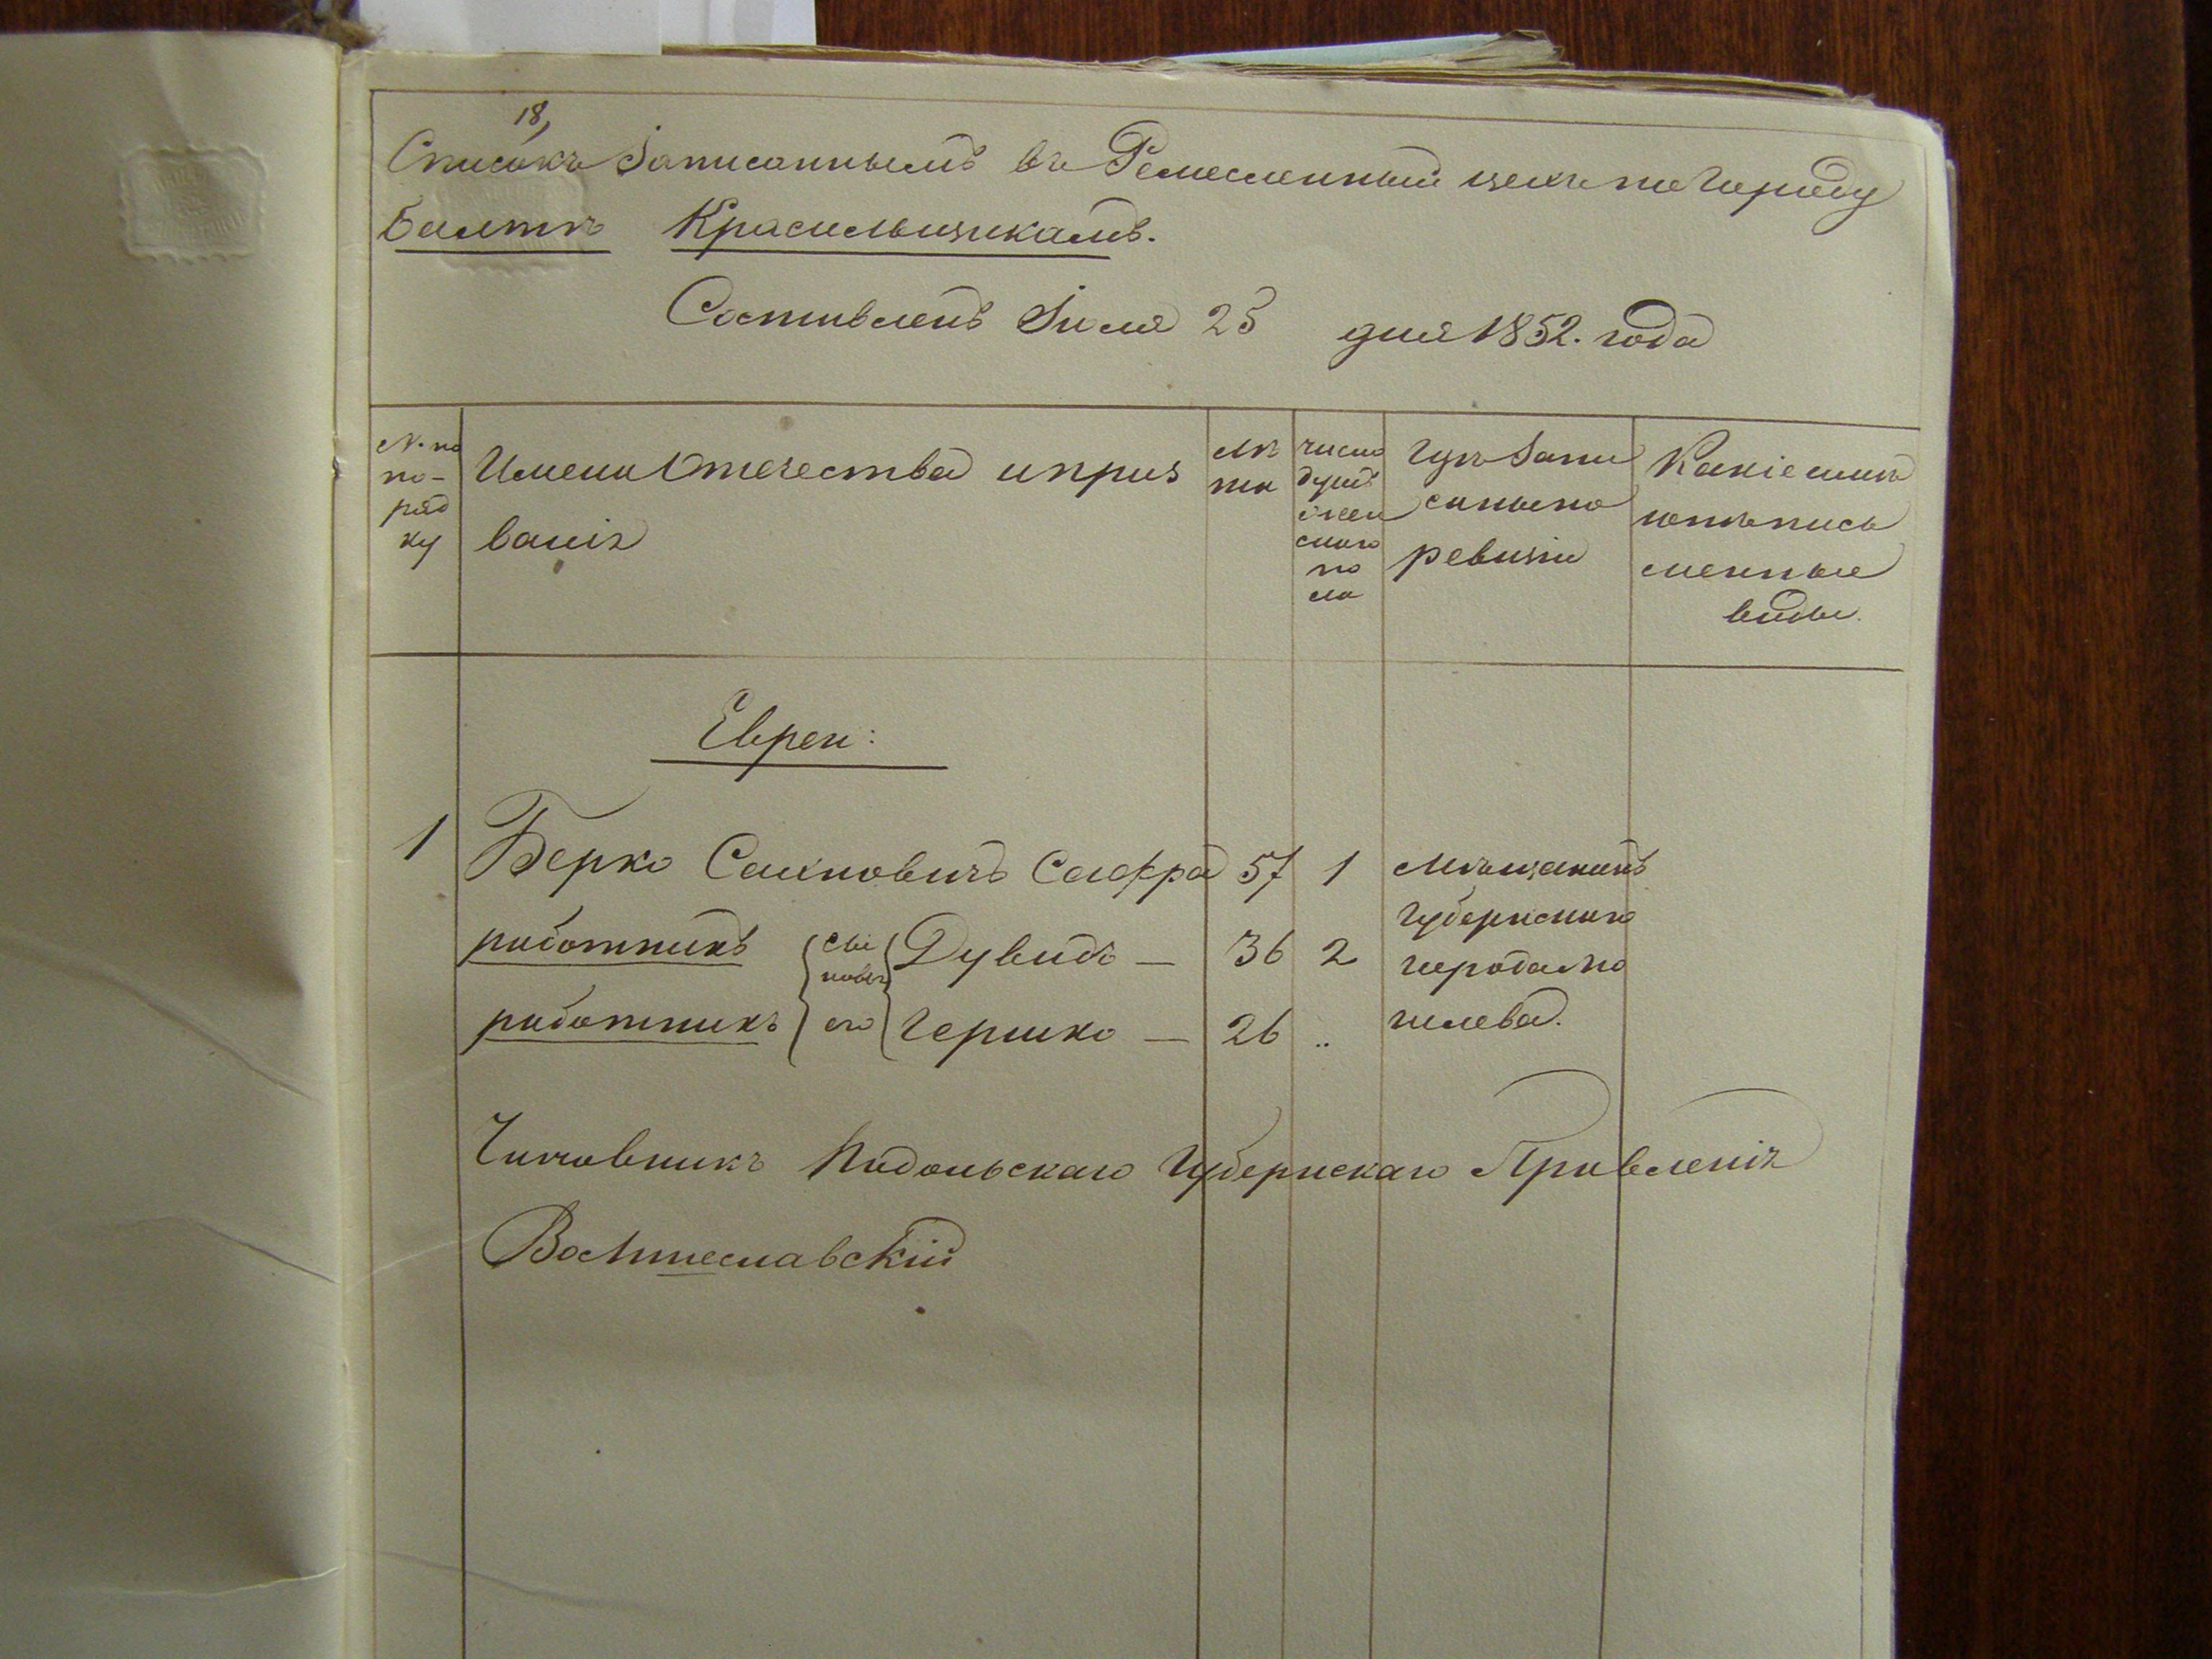 18,
Списокъ Записаннымъ въ Ремесленный цехъ по городу
Балтѣ Красильщикамъ.
Составленъ Іюля 25 дня 1852. года
№. по
по-
ряд
ку
Имена Отечества и проз
ванія
Лѣ
та
число
душъ
жен
скаго
по
ла
Гдѣ запи
саны по
ревизіи
Какіе имѣ
ютъ пись
менные
виды.
Евреи:
1 Берко Самновичъ 57 1 Мѣщанинъ
губернскаго
работникъ сы
новья Дувидъ — 36 2 города Мо
работникъ его Гершко — 26 „ гилева.
Чиновникъ Подольскаго Губернскаго Правленія